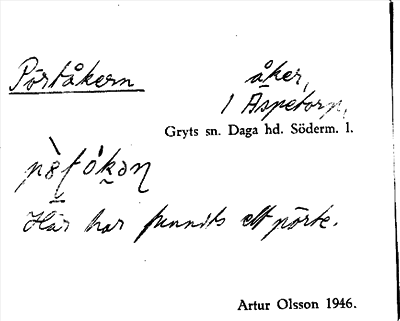 Pörtåkern åker,
1 Äspetorp,
Gryts sn. Daga hd. Söderm. l.
Här har funnits ett pörte.
Artur Olsson 1946.